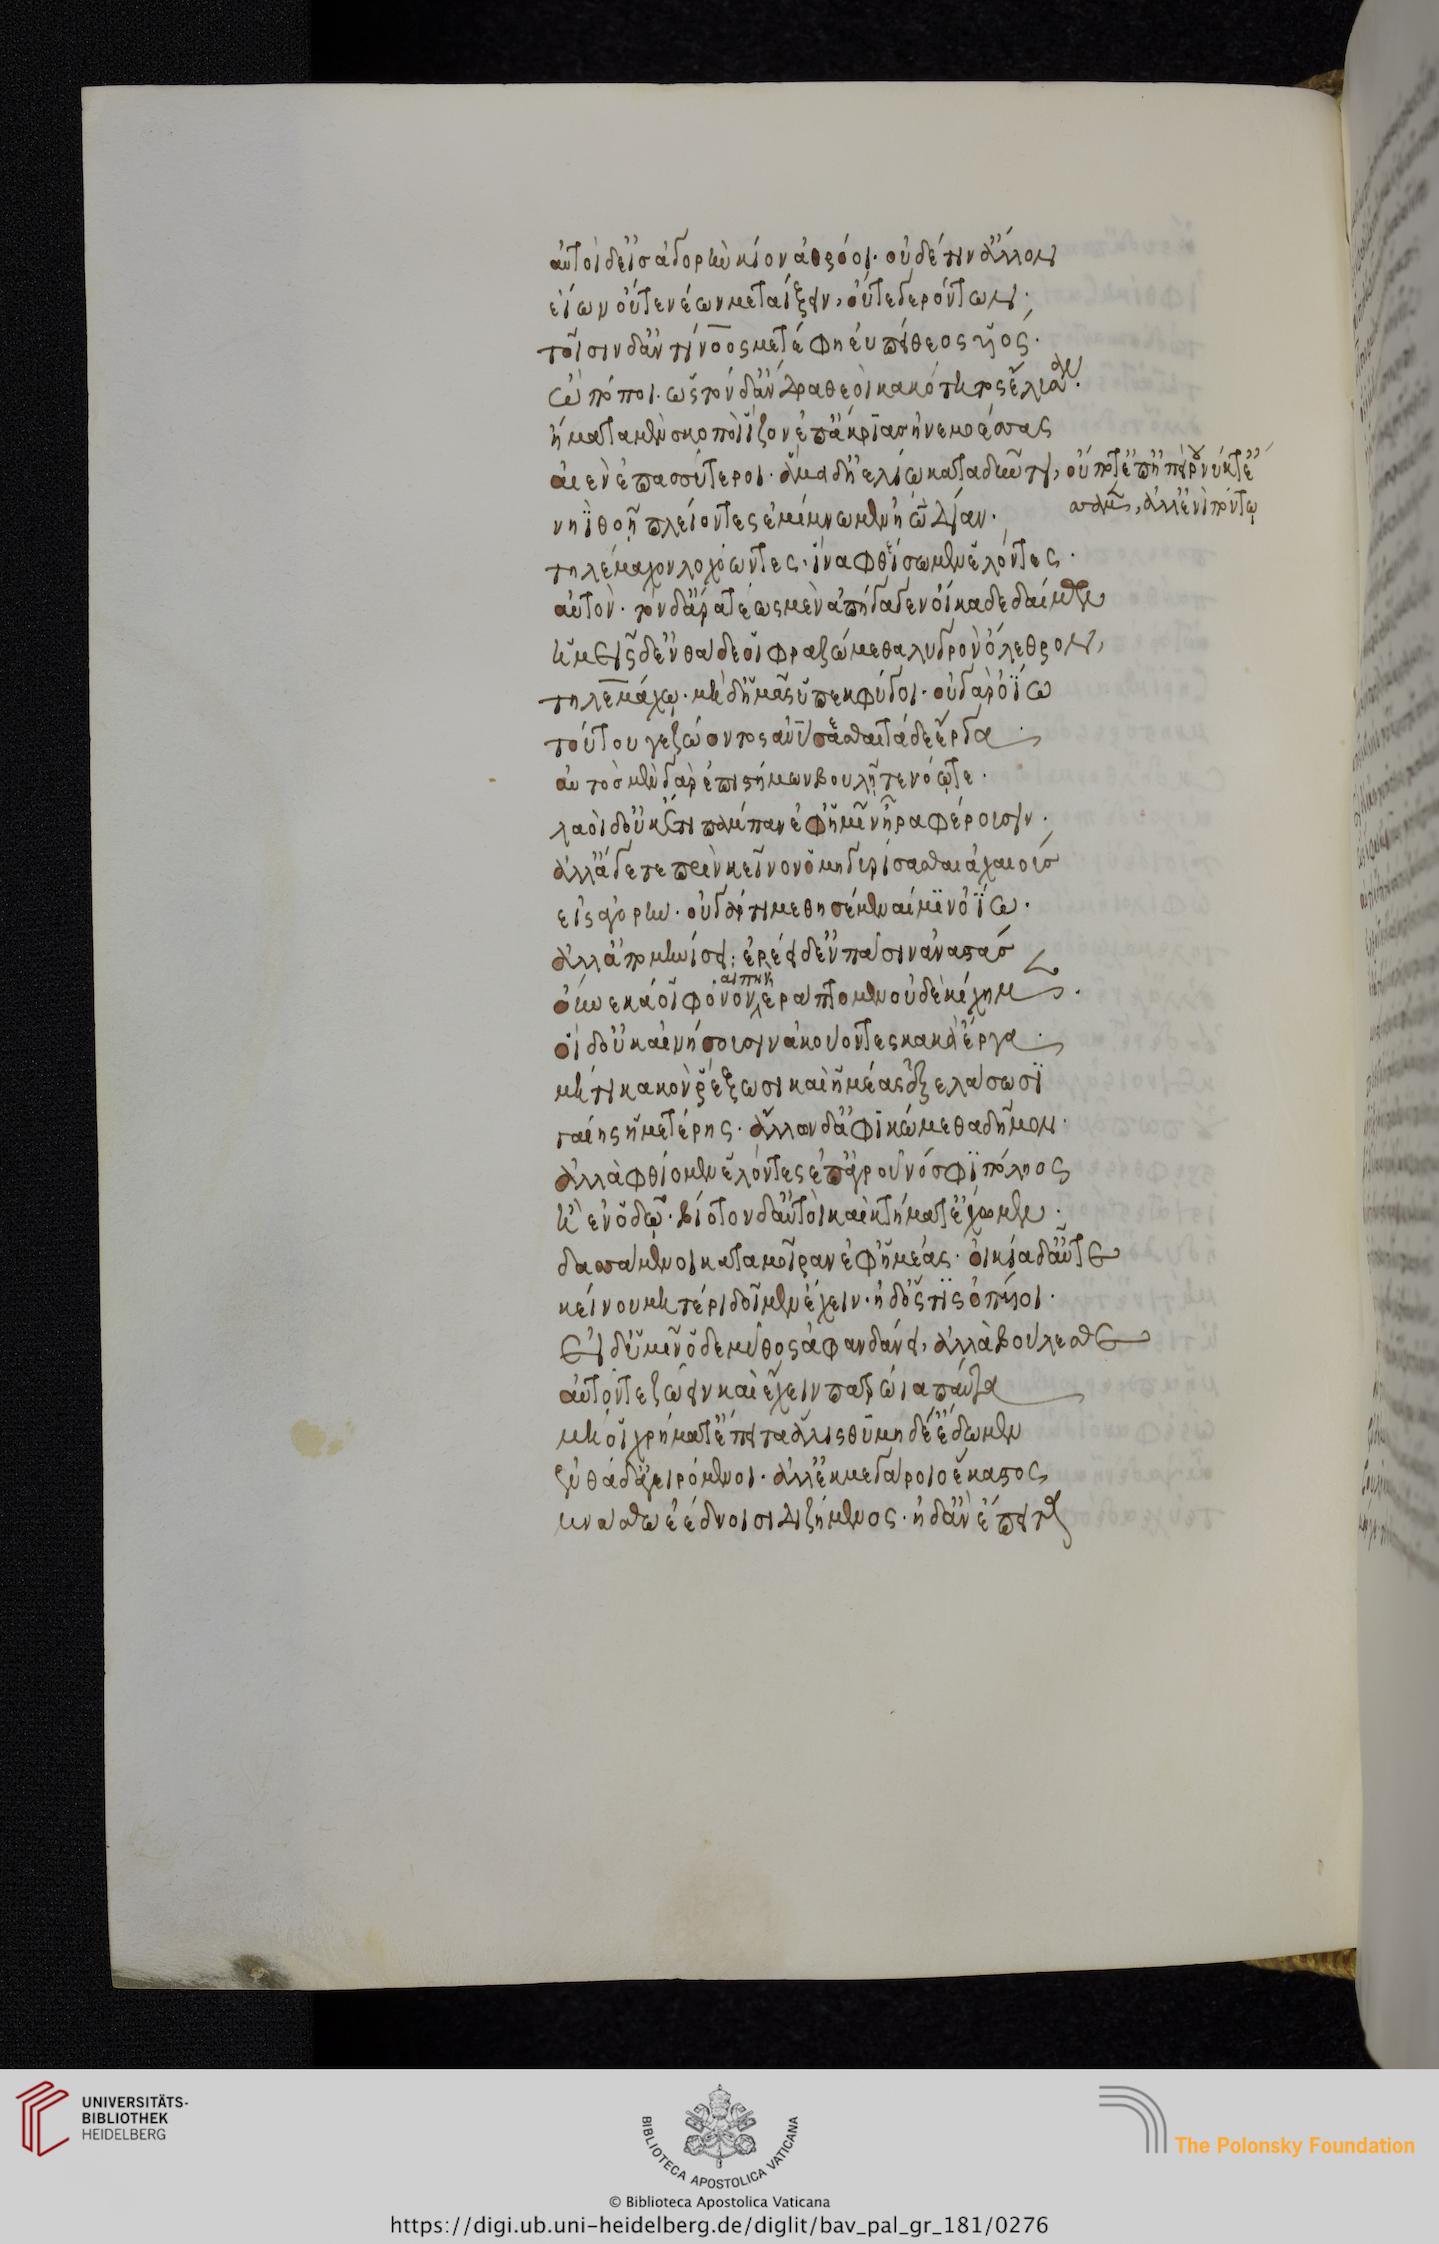 αὐτοὶ δ' εἰς ἀγορὴν κίον ἀθρόοι· οὐδέ τιν' ἄλλον
εἴων οὔτε νέων μεταΐζειν, οὔτε γερόντων·
τοῖσιν δ' Ἀντίνοος μετέφη εὐπείθεος υἱός·
ὢ πόποι· ὡς τόνδ' ἄνδρα θεοὶ κακότητος ἔλυσαν·
ἤματα μὲν σκοποὶ ἷζον ἐπ' ἄκριας ἠνεμοέσσας
αἰὲν ἐπασσύτεροι· ἅμα δ' ἠελίω καταδύντι, οὔποτ' ἐπ' ἠπείρου νύκτ'
ἄσαμεν, ἀλλ' ἐνὶ πόντῳ
νηῒ θοῇ πλείοντες ἐμίμνωμεν ἠῶ δῖαν·
τηλέμαχον λοχόωντες· ἵνα φθίσωμεν ἑλόντες·
αὐτόν· τὸν δ' ἄρα τέως μὲν ἀπήγαγεν οἴκαδε δαίμων
ἡμεῖς δ' ἐνθάδε οἱ φραζώμεθα λυγρὸν ὄλεθρον,
τηλεμάχῳ· μηδ' ἧμας ὑπεκφύγοι· οὐ γὰρ ὀΐω
τούτου γε ζώοντος ἀνύσσεσθαι τάδε ἔργα
αὐτὸς μὲν γὰρ ἐπιστήμων βουλῇ τε νόῳ τε·
λαοὶ δ' οὐκέτι πάμπαν ἐφ' ἡμῖν ἦρα φέρουσιν·
ἀλλ' ἄγετε πρὶν κεῖνον ὁμηγυρίσασθαι ἀχαιούς
εἰς ἀγορὴν· οὐ γάρ τι μεθησέμεναί μιν ὀΐω·
ἀλλ' ἀπομηνίσει· ἐρέει δ' ἐν πᾶσιν ἀναστάς
οὕνεκά οἱ φόνον αἰπὺν ἐράπτομεν οὐδ' ἐκίχημεν·
οἱ δ' οὐκ αἰνήσουσιν ἀκούοντες κακὰ ἔργα·
μή τι κακὸν ῥέξωσι καὶ ἡμέας ἐξελάσωσι
γαίης ἡμετέρης· ἄλλων δ' ἀφικώμεθα δῆμον·
ἀλλὰ φθέωμεν ἑλόντες ἐπ' ἀγροῦ νόσφι πόληος
ἢ ἐν ὁδῷ· βίοτον δ' αὐτοὶ καὶ κτήματ' ἔχωμεν·
δασσάμενοι κατὰ μοῖραν ἐφ' ἡμέας· οἰκία δ' αὖτε
κείνου μητέρι δοῖμεν ἔχειν· ἠδ' ὅστις ὀπυίοι·
εἰ δ' ὑμῖν ὅδε μῦθος ἀφανδάνει, ἀλλὰ βούλεσθε
αὐτόν τε ζώειν καὶ ἔχειν πατρώια πάντα
μή οἱ χρήματ' ἔπειτα ἅλις θυμηδέ' ἔδωμεν
ἐνθάδ' ἀγειρόμενοι· ἀλλ' ἐκ μεγάροιο ἕκαστος
μνάσθω ἐέδνοισι διζήμενος· ἡ δ' ἂν ἔπειτα
UNIVERSITÄTS-
BIBLIOTHEK
HEIDELBERG
BIBLIOTECA APOSTOLICA VATICANA
The Polonsky Foundation
© Biblioteca Apostolica Vaticana
https://digi.ub.uni-heidelberg.de/diglit/bav_pal_gr_181/0276